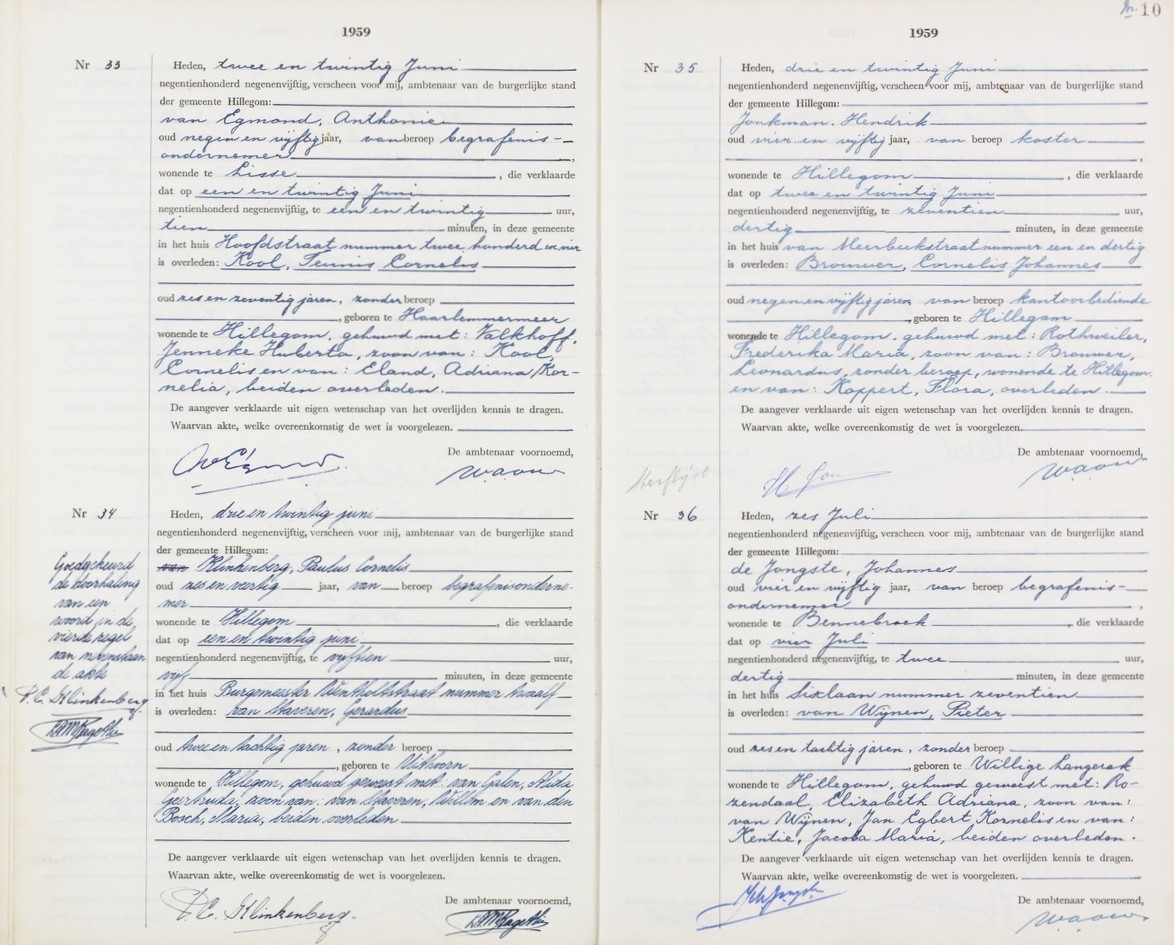 1959
Nr 33 Heden, twee en twintig Juni
negentienhonderd negenenvijftig, verscheen voor mij, ambtenaar van de burgerlijke stand
der gemeente Hillegom:
van Egmond, Anthonie
oud negen en vijftig jaar, van beroep begrafenis-
ondernemer,
wonende te Lisse, die verklaarde
dat op een en twintig Juni
negentienhonderd negenenvijftig, te een en twintig uur,
tien minuten, in deze gemeente
in het huis Hoofdstraat nummer twee honderd en vier
is overleden: Kool, Teunis Cornelis
oud zes en zeventig jaren, zonder beroep
, geboren te Haarlemmermeer
wonende te Hillegom, gehuwd met: Valkhoff,
Jenneke Huberta, zoon van: Kool,
Cornelis en van: Eland, Adriana/Kor-
nelia, beiden overleden.
De aangever verklaarde uit eigen wetenschap van het overlijden kennis te dragen.
Waarvan akte, welke overeenkomstig de wet is voorgelezen.
De ambtenaar voornoemd,
Nr 34 Heden, drie en twintig juni
negentienhonderd negenenvijftig, verscheen voor mij, ambtenaar van de burgerlijke stand
der gemeente Hillegom:
van Klinkenberg, Paulus Cornelis
oud zes en veertig jaar, van beroep begrafenisonderne-
mer,
wonende te Hillegom, die verklaarde
dat op een en twintig juni
negentienhonderd negenenvijftig, te vijftien uur,
vijf minuten, in deze gemeente
in het huis Burgemeester Wentholtstraat nummer twaalf
is overleden: van Staveren, Gerardus
oud twee en tachtig jaren, zonder beroep
, geboren te Uithoorn
wonende te Hillegom, gehuwd geweest met: van Galen, Alida
Geertruida, zoon van: van Staveren, Willem en van den
Bosch, Maria, beiden overleden
De aangever verklaarde uit eigen wetenschap van het overlijden kennis te dragen.
Waarvan akte, welke overeenkomstig de wet is voorgelezen.
De ambtenaar voornoemd,
P.C. Klinkenberg.
Goedgekeurd
de doorhaling
van een
woord in de
vierde regel
van nevenstaan
de akte
P.C. Klinkenberg
10
1959
Nr 35 Heden, drie en twintig Juni
negentienhonderd negenenvijftig, verscheen voor mij, ambtenaar van de burgerlijke stand
der gemeente Hillegom:
Jonkman, Hendrik
oud vier en vijftig jaar, van beroep koster
,
wonende te Hillegom, die verklaarde
dat op twee en twintig Juni
negentienhonderd negenenvijftig, te zeventien uur,
dertig minuten, in deze gemeente
in het huis van Meerbeekstraat nummer een en dertig
is overleden: Brouwer, Cornelis Johannes
oud negen en vijftig jaren van beroep kantoorbediende
, geboren te Hillegom
wonende te Hillegom, gehuwd met: Rothweiler,
Frederika Maria, zoon van: Brouwer,
Leonardus, zonder beroep, wonende te Hillegom.
en van: Koppert, Flora, overleden.
De aangever verklaarde uit eigen wetenschap van het overlijden kennis te dragen.
Waarvan akte, welke overeenkomstig de wet is voorgelezen.
De ambtenaar voornoemd,
Nr 36 Heden, zes Juli
negentienhonderd negenenvijftig, verscheen voor mij, ambtenaar van de burgerlijke stand
der gemeente Hillegom:
de Jongste, Johannes
oud vier en vijftig jaar, van beroep begrafenis-
ondernemer,
wonende te Bennebroek, die verklaarde
dat op vier Juli
negentienhonderd negenenvijftig, te twee uur,
dertig minuten, in deze gemeente
in het huis Sixlaan nummer zeventien
is overleden: van Wijnen, Pieter
oud zes en tachtig jaren, zonder beroep
, geboren te Willige Langerak
wonende te Hillegom, gehuwd geweest met: Ro-
zendaal, Elizabeth Adriana, zoon van:
van Wijnen, Jan Egbert Kornelis en van:
Kentie, Jacoba Maria, beiden overleden.
De aangever verklaarde uit eigen wetenschap van het overlijden kennis te dragen.
Waarvan akte, welke overeenkomstig de wet is voorgelezen.
De ambtenaar voornoemd,